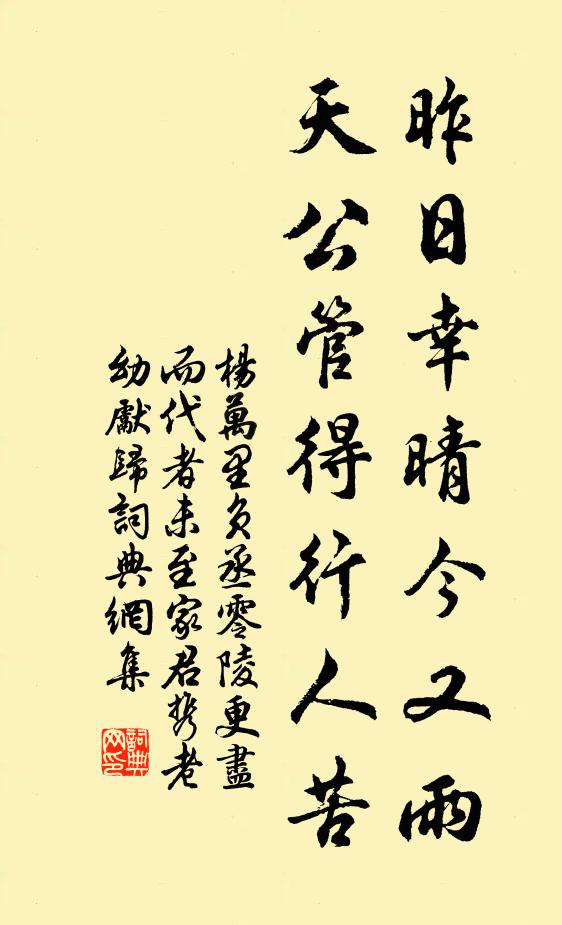 昨日幸晴今又雨
天公管得行人苦
楊萬里負丞零陵更盡
而代者未至家君挈老
幼獻歸詞典網集
詞典
网印